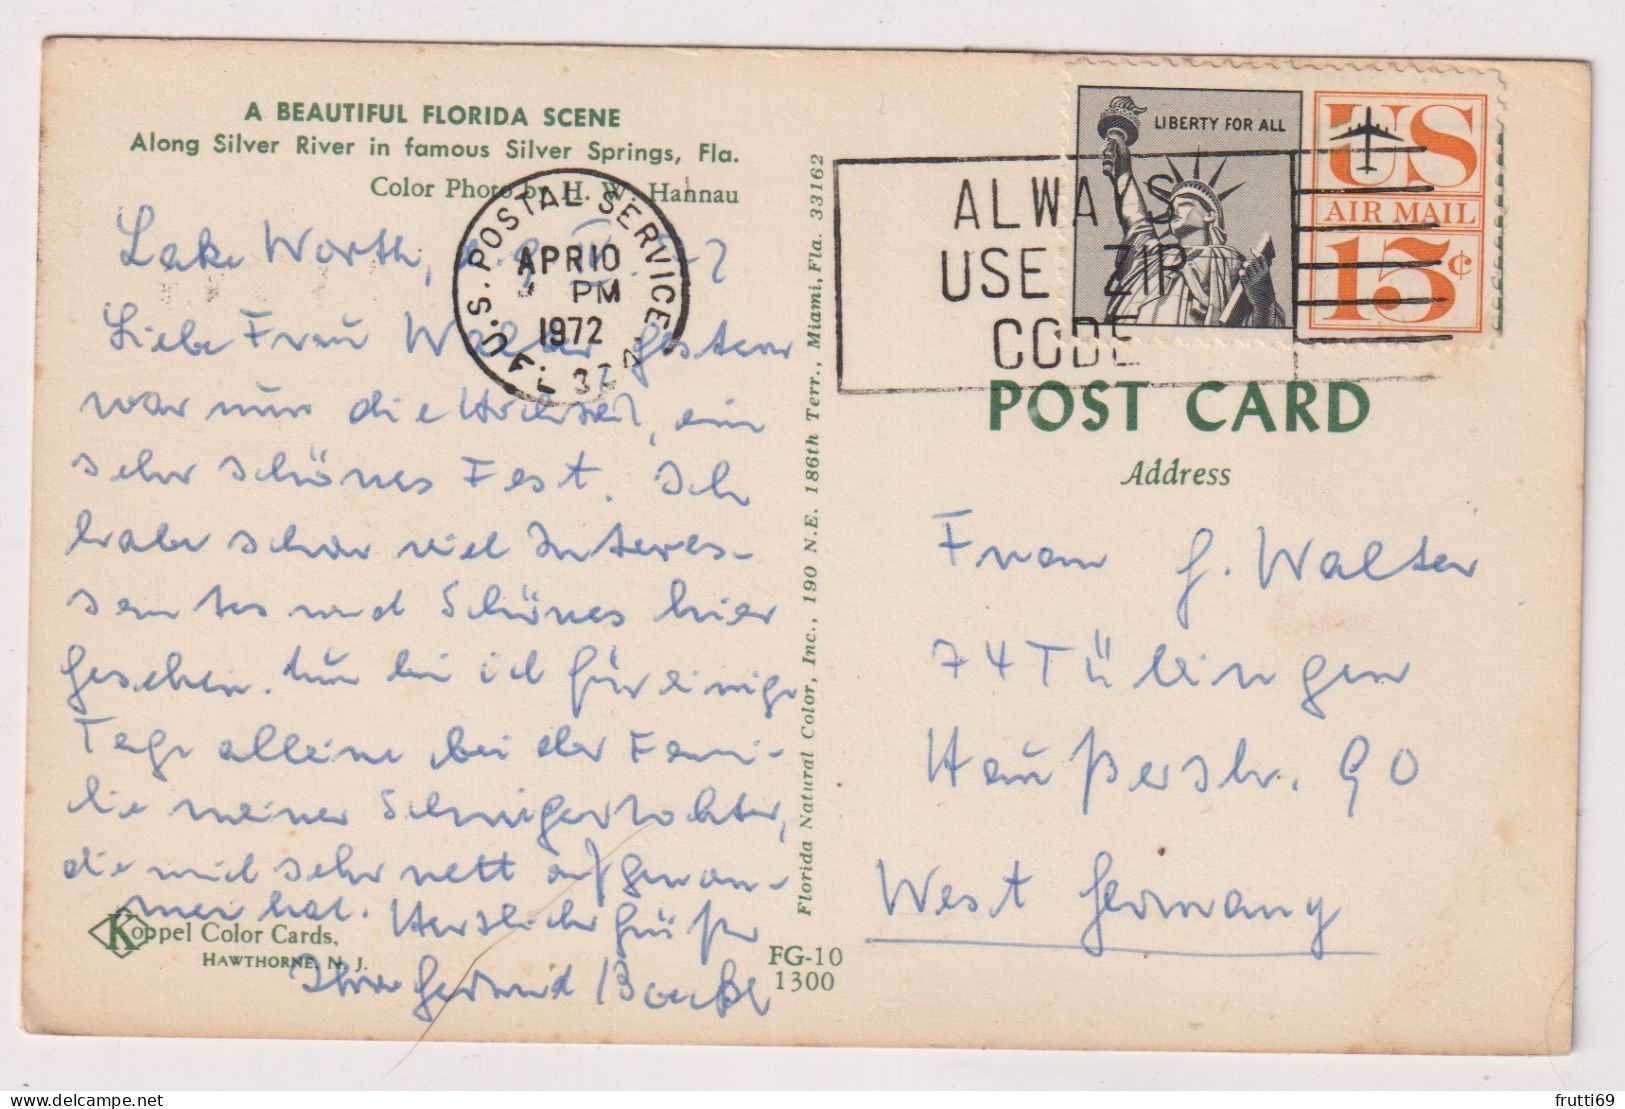 A BEAUTIFUL FLORIDA SCENE
Along Silver River in famous Silver Springs, Fla.
Color Photo by H. W. Hannau
Lake Worth,
Liebe Frau Walter, Gestern
war nun die Hochzeit, ein
sehr schönes Fest. Ich
habe schon viel Interes-
santes und Schönes hier
gesehen. Nun bin ich für einige
Tage alleine bei der Fami-
lie meiner Schwiegertochter,
die mich sehr nett aufgenom-
men hat. Herzliche Grüße
Ihre
Koppel Color Cards,
HAWTHORNE, N. J.
FG-10
1300
Florida Natural Color, Inc., 190 N.E. 186th Terr., Miami, Fla. 33162
U.S. POSTAL SERVICE
APR 10
PM
1972
ALWAYS
USE ZIP
CODE
LIBERTY FOR ALL
US
AIR MAIL
13¢
POST CARD
Address
Frau G. Walter
74 Tübingen
Haußerstr. 90
West Germany
frutti69